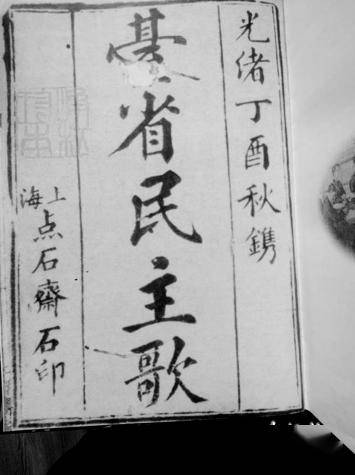 光緒丁酉秋鐫
臺省民主歌
上海点石齋石印